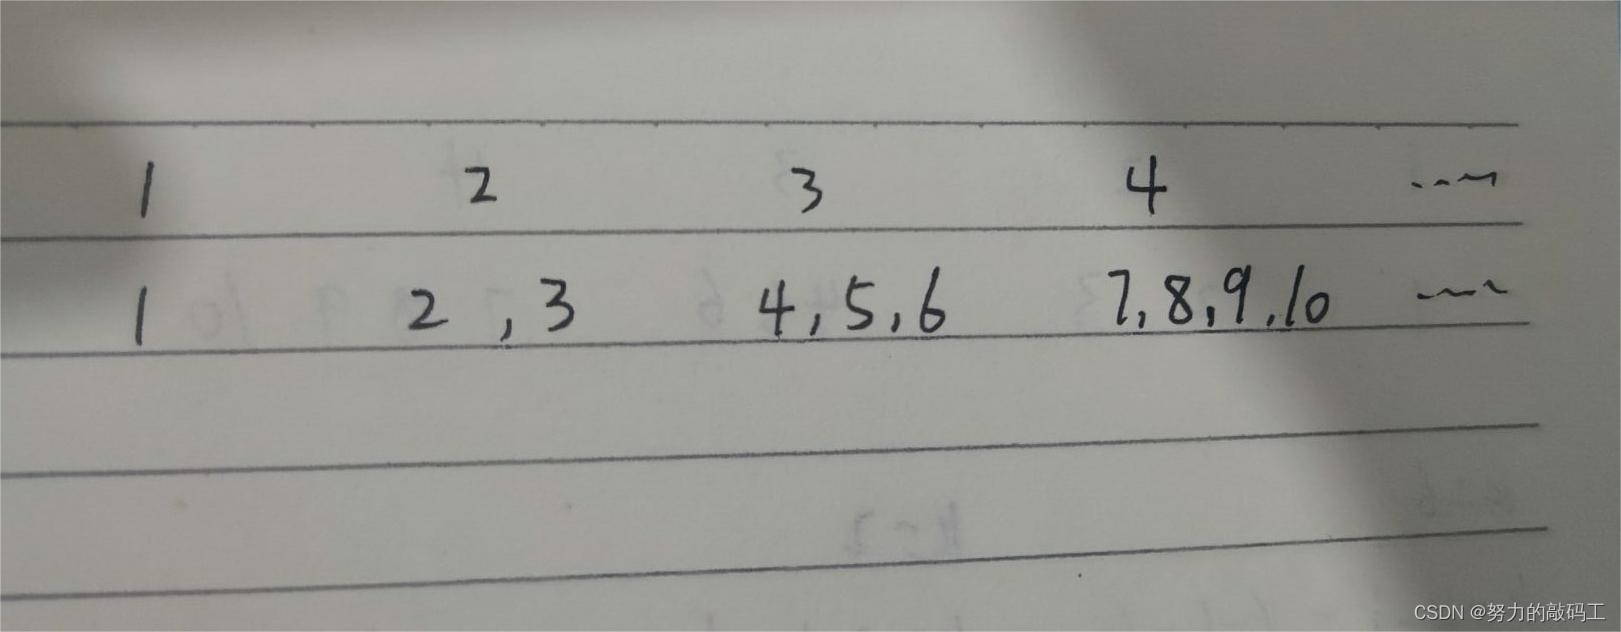 1 2 3 4 ......
1 2,3 4,5,6 7,8,9,10 ......
CSDN @努力的敲码工